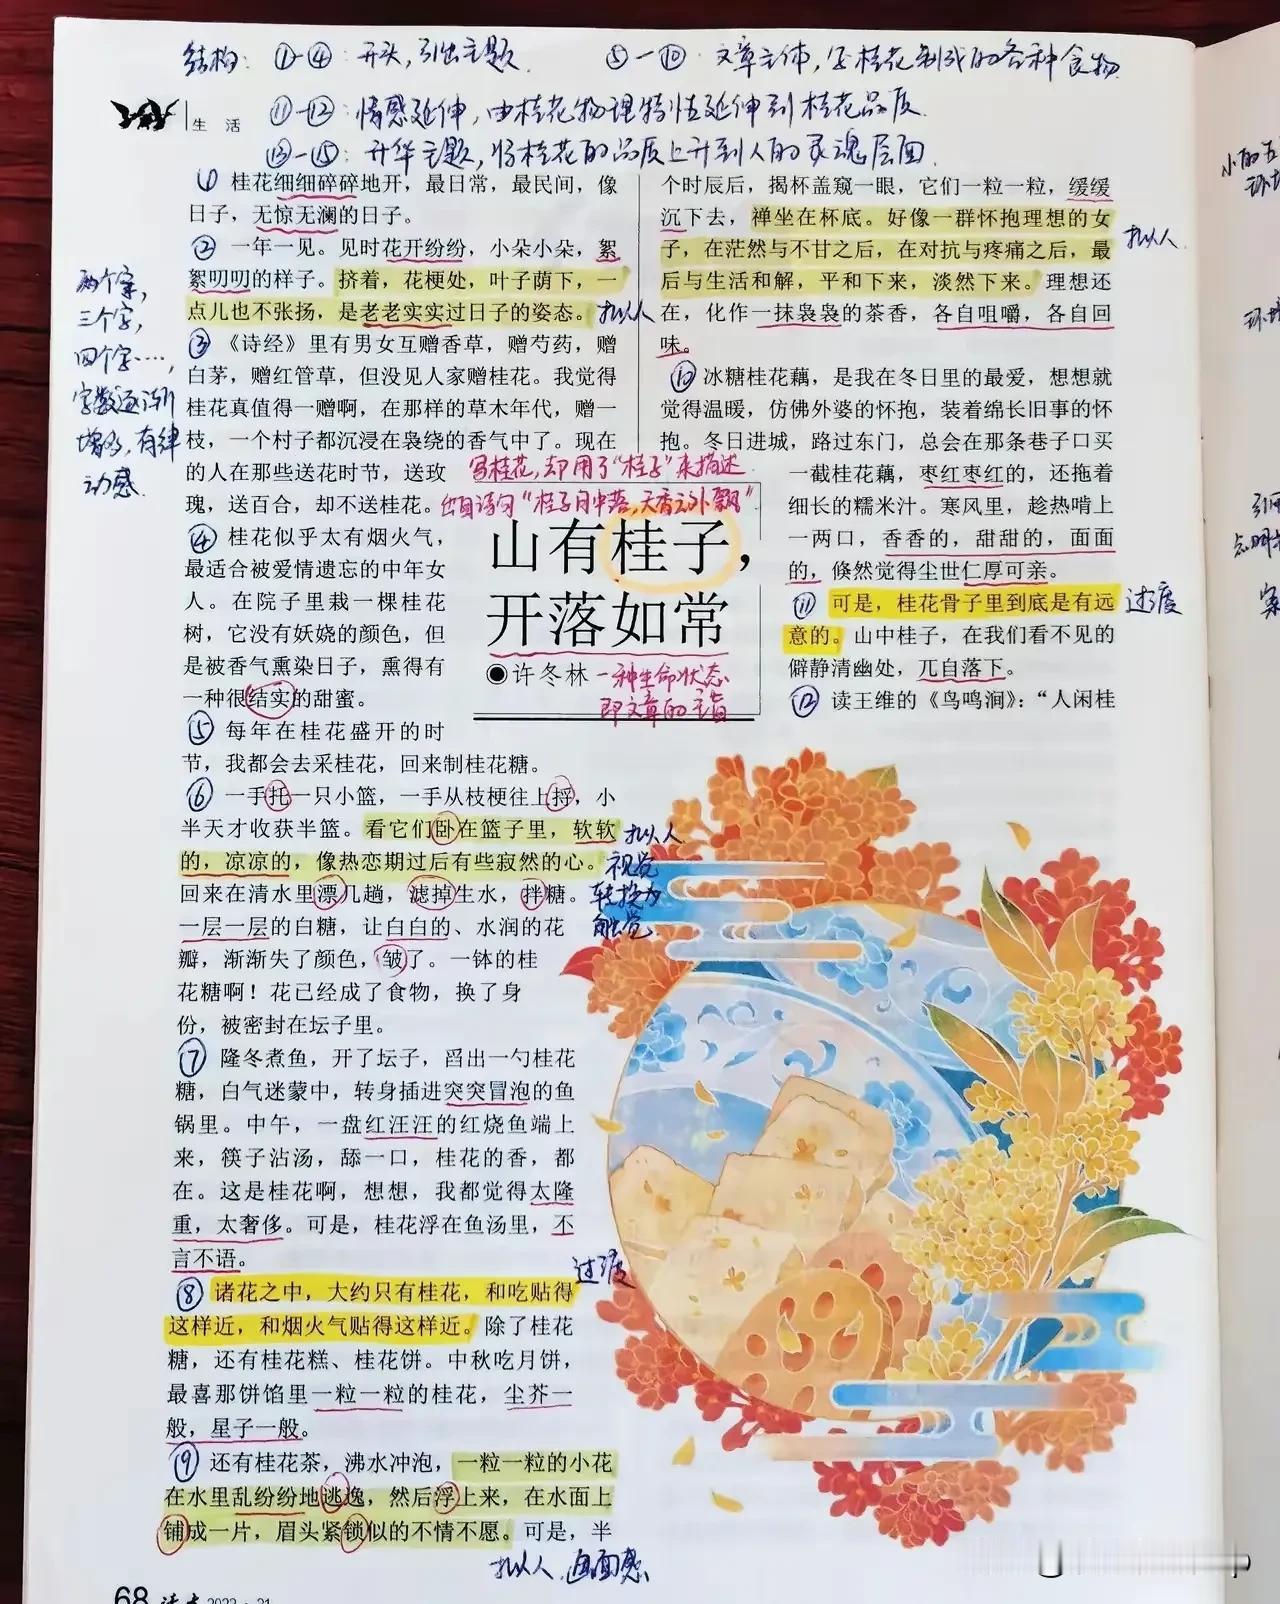 结构: ①-④: 开头,引出主题. ⑤-⑩: 文章主体,写桂花制成的各种食物
生 活
⑪-⑫: 情感延伸,由桂花物理特性延伸到桂花品质.
⑬-⑮: 升华主题,将桂花的品质上升到人的灵魂层面.
① 桂花细细碎碎地开，最日常，最民间，像
日子，无惊无澜的日子。
② 一年一见。见时花开纷纷，小朵小朵，絮
絮叨叨的样子。挤着，花梗处，叶子荫下，一
点儿也不张扬，是老老实实过日子的姿态。
拟人
两个字,
三个字,
四个字…,
字数逐渐
增多,有律
动感.
③ 《诗经》里有男女互赠香草，赠芍药，赠
白茅，赠红管草，但没见人家赠桂花。我觉得
桂花真值得一赠啊，在那样的草木年代，赠一
枝，一个村子都沉浸在袅绕的香气中了。现在
的人在那些送花时节，送玫
瑰，送百合，却不送桂花。
④ 桂花似乎太有烟火气，
最适合被爱情遗忘的中年女
人。在院子里栽一棵桂花
树，它没有妖娆的颜色，但
是被香气熏染日子，熏得有
一种很结实的甜蜜。
⑤ 每年在桂花盛开的时
节，我都会去采桂花，回来制桂花糖。
⑥ 一手托一只小篮，一手从枝梗往上捋，小
半天才收获半篮。看它们卧在篮子里，软软
的，凉凉的，像热恋期过后有些寂然的心。
回来在清水里漂几趟，滤掉生水，拌糖。
一层一层的白糖，让白白的、水润的花
瓣，渐渐失了颜色，皱了。一钵的桂
花糖啊！花已经成了食物，换了身
份，被密封在坛子里。
拟人
视觉
转换为
触觉.
⑦ 隆冬煮鱼，开了坛子，舀出一勺桂花
糖，白气迷蒙中，转身插进突突冒泡的鱼
锅里。中午，一盘红汪汪的红烧鱼端上
来，筷子沾汤，舔一口，桂花的香，都
在。这是桂花啊，想想，我都觉得太隆
重，太奢侈。可是，桂花浮在鱼汤里，不
言不语。
过渡
⑧ 诸花之中，大约只有桂花，和吃贴得
这样近，和烟火气贴得这样近。除了桂花
糖，还有桂花糕、桂花饼。中秋吃月饼，
最喜那饼馅里一粒一粒的桂花，尘芥一
般，星子一般。
⑨ 还有桂花茶，沸水冲泡，一粒一粒的小花
在水里乱纷纷地逃逸，然后浮上来，在水面上
铺成一片，眉头紧锁似的不情不愿。可是，半
拟人,画面感
写桂花,却用了“桂子”来描述
出自诗句“桂子月中落,天香云外飘”
山有桂子，
开落如常
●许冬林
一种生命状态
即文章的主旨
个时辰后，揭杯盖窥一眼，它们一粒一粒，缓缓
沉下去，禅坐在杯底。好像一群怀抱理想的女
子，在茫然与不甘之后，在对抗与疼痛之后，最
后与生活和解，平和下来，淡然下来。理想还
在，化作一抹袅袅的茶香，各自咀嚼，各自回
味。
拟人
⑩ 冰糖桂花藕，是我在冬日里的最爱，想想就
觉得温暖，仿佛外婆的怀抱，装着绵长旧事的怀
抱。冬日进城，路过东门，总会在那条巷子口买
一截桂花藕，枣红枣红的，还拖着
细长的糯米汁。寒风里，趁热啃上
一两口，香香的，甜甜的，面面
的，倏然觉得尘世仁厚可亲。
⑪ 可是，桂花骨子里到底是有远
意的。山中桂子，在我们看不见的
僻静清幽处，兀自落下。
过渡
⑫ 读王维的《鸟鸣涧》：“人闲桂
68 读者 2022·21